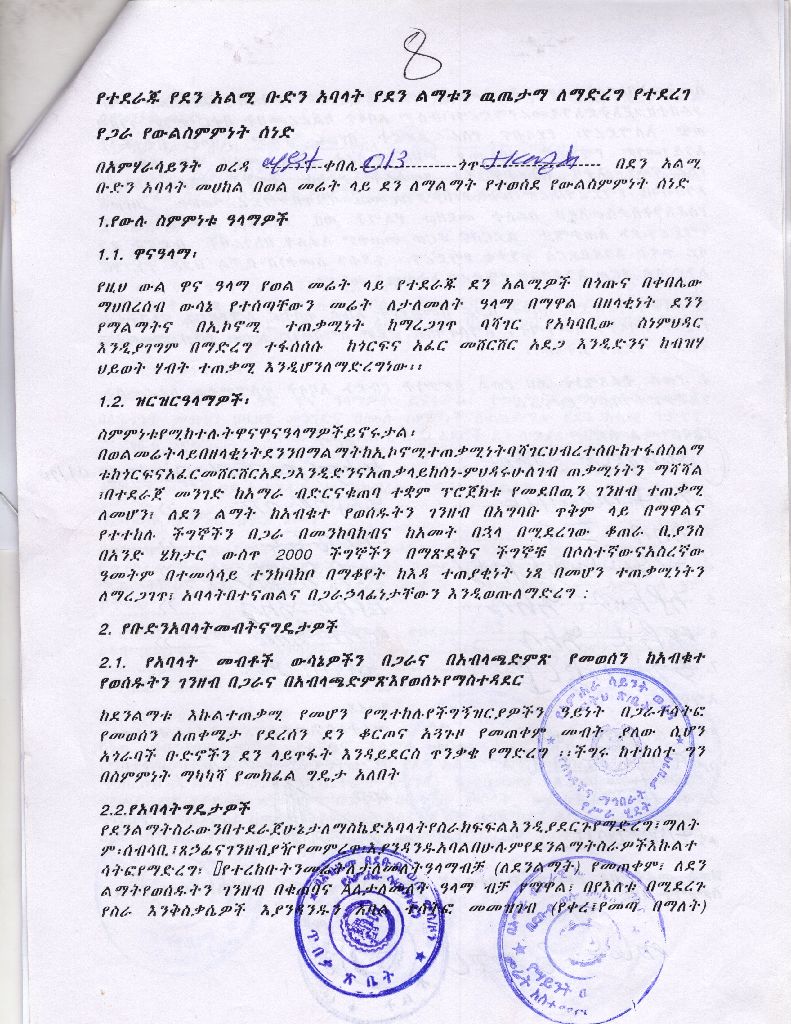 8
የተደራጁ የደን አልሚ ቡድን አባላት የደን ልማቱን ዉጤታማ ለማድረግ የተደረገ
የጋራ የውልስምምነት ሰነድ
በአምሃራሳይንት ወረዳ ቀበሌ 013 ጎጥ በደን አልሚ
ቡድን አባላት መሀከል በወል መሬት ላይ ደን ለማልማት የተወሰደ የውልስምምነት ሰነድ
1.የውሉ ስምምነቱ ዓላማዎች
1.1. ዋናዓላማ፡
የዚህ ውል ዋና ዓላማ የወል መሬት ላይ የተደራጁ ደን አልሚዎች በጎጡና በቀበሌው
ማህበረሰብ ውሳኔ የተሰጣቸውን መሬት ለታለመለት ዓላማ በማዋል በዘላቂነት ደንን
የማልማትና በኢኮኖሚ ተጠቃሚነት ከማረጋገጥ ባሻገር የአካባቢው ስነምህዳር
እንዲያገግም በማድረግ ተፋሰሰሱ ከጎርፍና አፈር መሸርሸር አደጋ እንዲድንና ከብዝሃ
ህይወት ሃብት ተጠቃሚ እንዲሆንለማድረግነው፡፡
1.2. ዝርዝርዓላማዎች፡
ስምምነቱየሚከተሉትዋናዋናዓላማዎችይኖሩታል፡
በወልመሬትላይበዘላቂነትደንንበማልማትከኢኮኖሚተጠቃሚነትባሻገርህብረተሰቡከተፋሰስልማ
ቱከጎርፍናአፈርመሸርሸርአደጋእንዲድንናአጠቃላይከስነ-ምህዳሩሁለገብ ጠቃሚነትን ማሻሻል
፣በተደራጀ መንገድ ከአማራ ብድርናቁጠባ ተቋም ፕሮጀክቱ የመደበዉን ገንዘብ ተጠቃሚ
ለመሆን፣ ለደን ልማት ከአብቁተ የወሰዱትን ገንዘብ በአግባቡ ጥቅም ላይ በማዋልና
የተተከሉ ችግኞችን በጋራ በመንከባከብና ከአመት በኋላ በሚደረገው ቆጠራ ቢያንስ
በአንድ ሄክታር ውስጥ 2000 ችግኞችን በማጽደቅና ችግኞቹ በሶስተኛውናአስረኛው
ዓመትም በተመሳሳይ ተንከባክቦ በማቆየት ከእዳ ተጠያቂነት ነጻ በመሆን ተጠቃሚነትን
ለማረጋገጥ፣ አባላትበተናጠልና በጋራኃላፊነታቸውን እንዲወጡለማድረግ :
2. የቡድንአባላትመብትናግዴታዎች
2.1. የአባላት መብቶች ውሳኔዎችን በጋራና በአብላጫድምጽ የመወሰን ከአብቁተ
የወሰዱትን ገንዘብ በጋራና በአብላጫድምጽእየወሰኑየማስተዳደር
ከደንልማቱ እኩልተጠቃሚ የመሆን የሚተከሉየችግኝዝርያዎችን ዓይነት በጋራተሳትፎ
የመወሰን ለጠቀሜታ የደረሰን ደን ቆርጦና አጓጉዞ የመጠቀም መብት ያለው ሲሆን
አጎራባች ቡድኖችን ደን ላይጥፋት እንዳይደርስ ጥንቃቄ የማድረግ ፡፡ችግሩ ከተከሰተ ግን
በስምምነት ማካካሻ የመክፈል ግዴታ አለበት
2.2.የአባላትግዴታዎች
የደንልማትስራውንበተደራጀሁኔታለማስኬድአባላትየስራክፍፍልእንዲያደርጉየማድረግ፣ማለት
ም፡ሰብሳቢ፣ጸኃፊናገንዘብያዥየመምረጥ፣እያንዳንዱአባልበሁሉምየደንልማትስራዎችእኩልተ
ሳትፎየማድረግ፣ የተረከቡትንመሬትለታለመለትዓላማብቻ (ለደንልማት) የመጠቀም፣ ለደን
ልማትየወሰዱትን ገንዘብ በቁጠባና Aለታለመለት ዓላማ ብቻ የማዋል፣ በየእለቱ በሚደረጉ
የስራ እንቅስቃሴዎች እያንዳንዱን አባል ተሳትፎ መመዝገብ (የቀረ፣የመጣ በማለት)
ጥበቃ ጽ ቤት